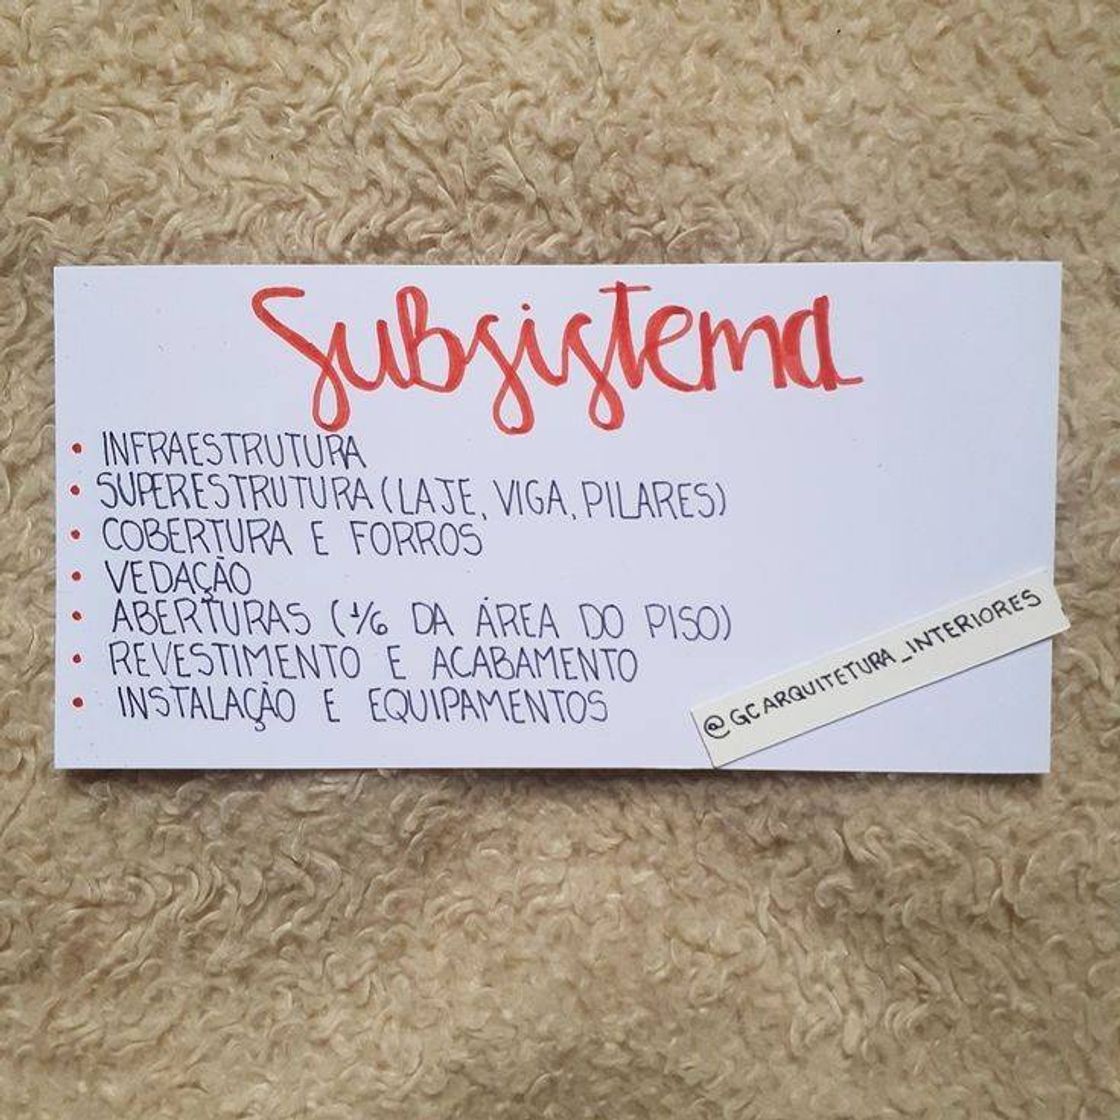 Subsistema
• INFRAESTRUTURA
• SUPERESTRUTURA (LAJE, VIGA, PILARES)
• COBERTURA E FORROS
• VEDAÇÃO
• ABERTURAS (1/6 DA ÁREA DO PISO)
• REVESTIMENTO E ACABAMENTO
• INSTALAÇÃO E EQUIPAMENTOS
@GCARQUITETURA_INTERIORES